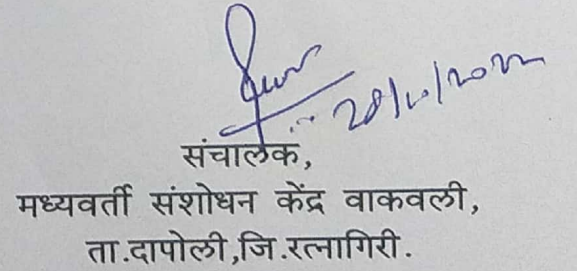 संचालक,
मध्यवर्ती संशोधन केंद्र वाकवली,
ता.दापोली,जि.रत्नागिरी.